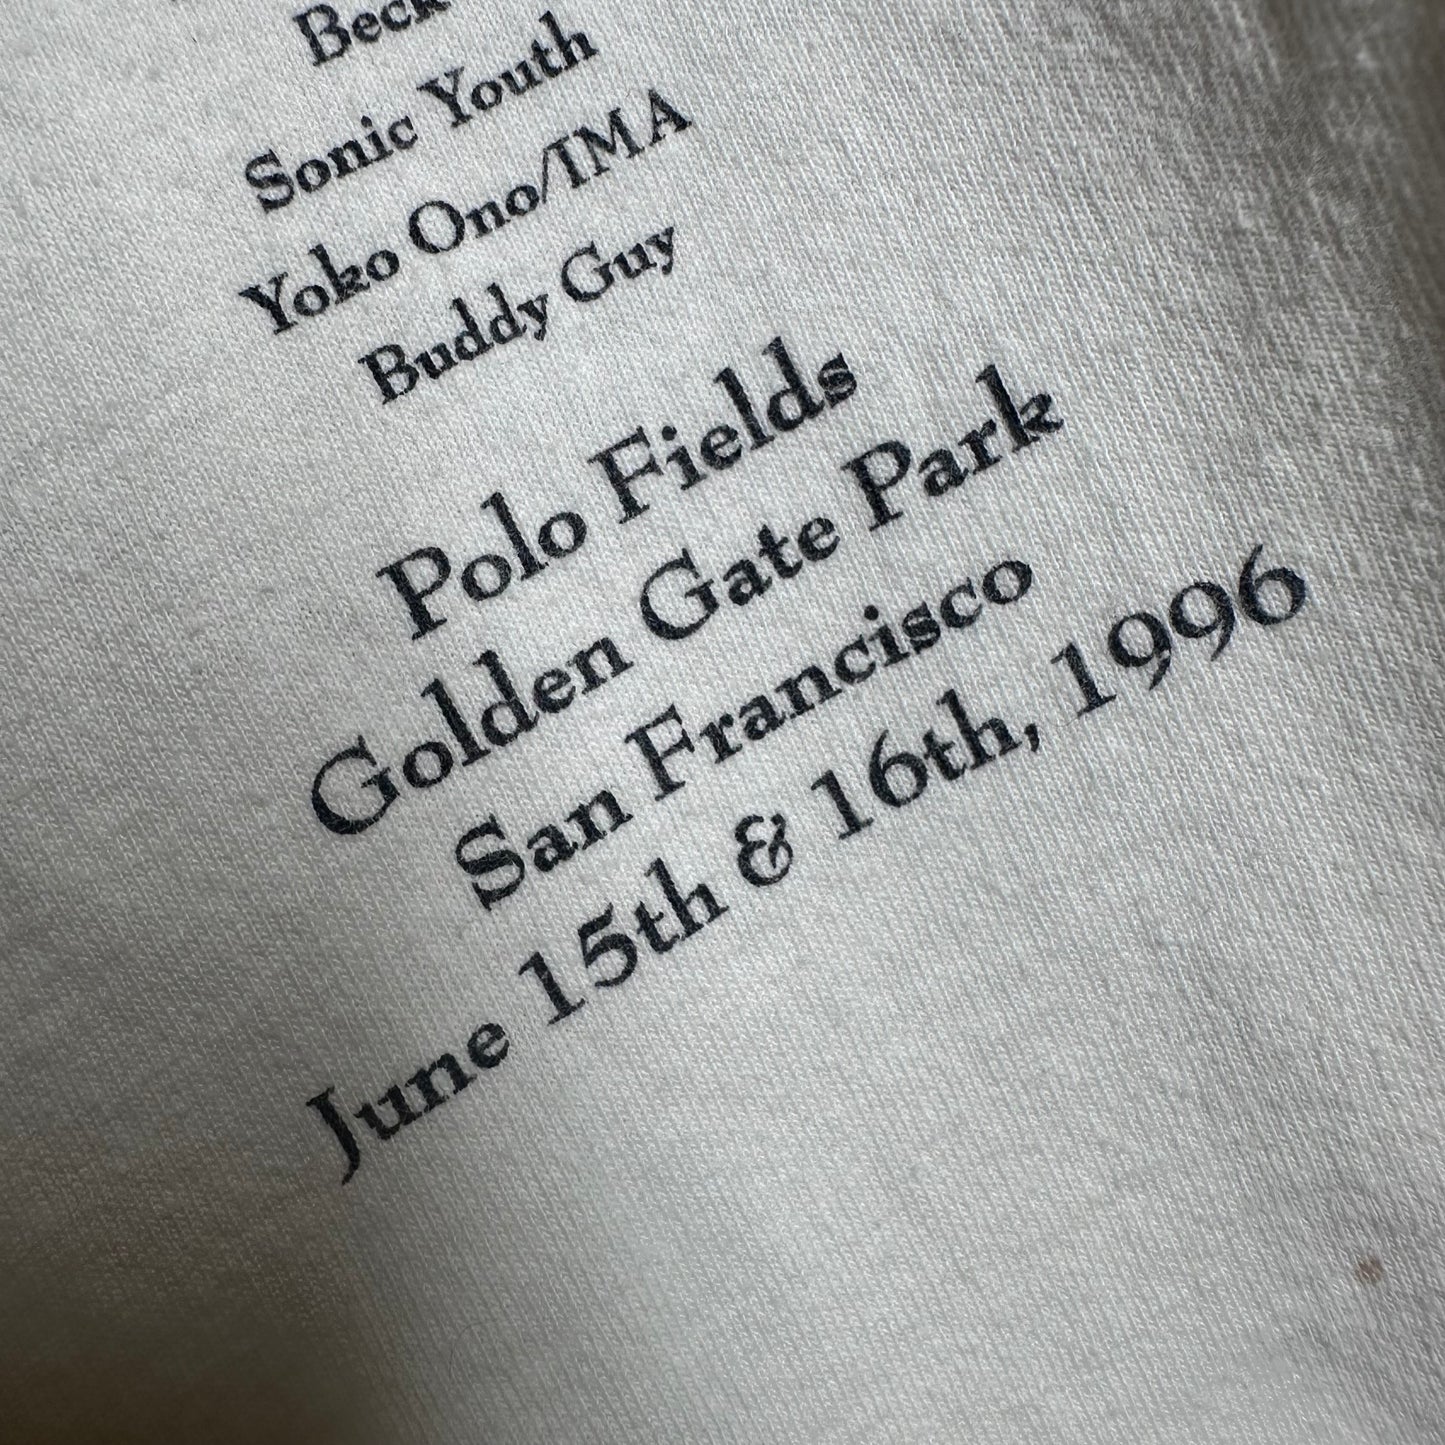 Beck
Sonic Youth
Yoko Ono/IMA
Buddy Guy
Polo Fields
Golden Gate Park
San Francisco
June 15th & 16th, 1996